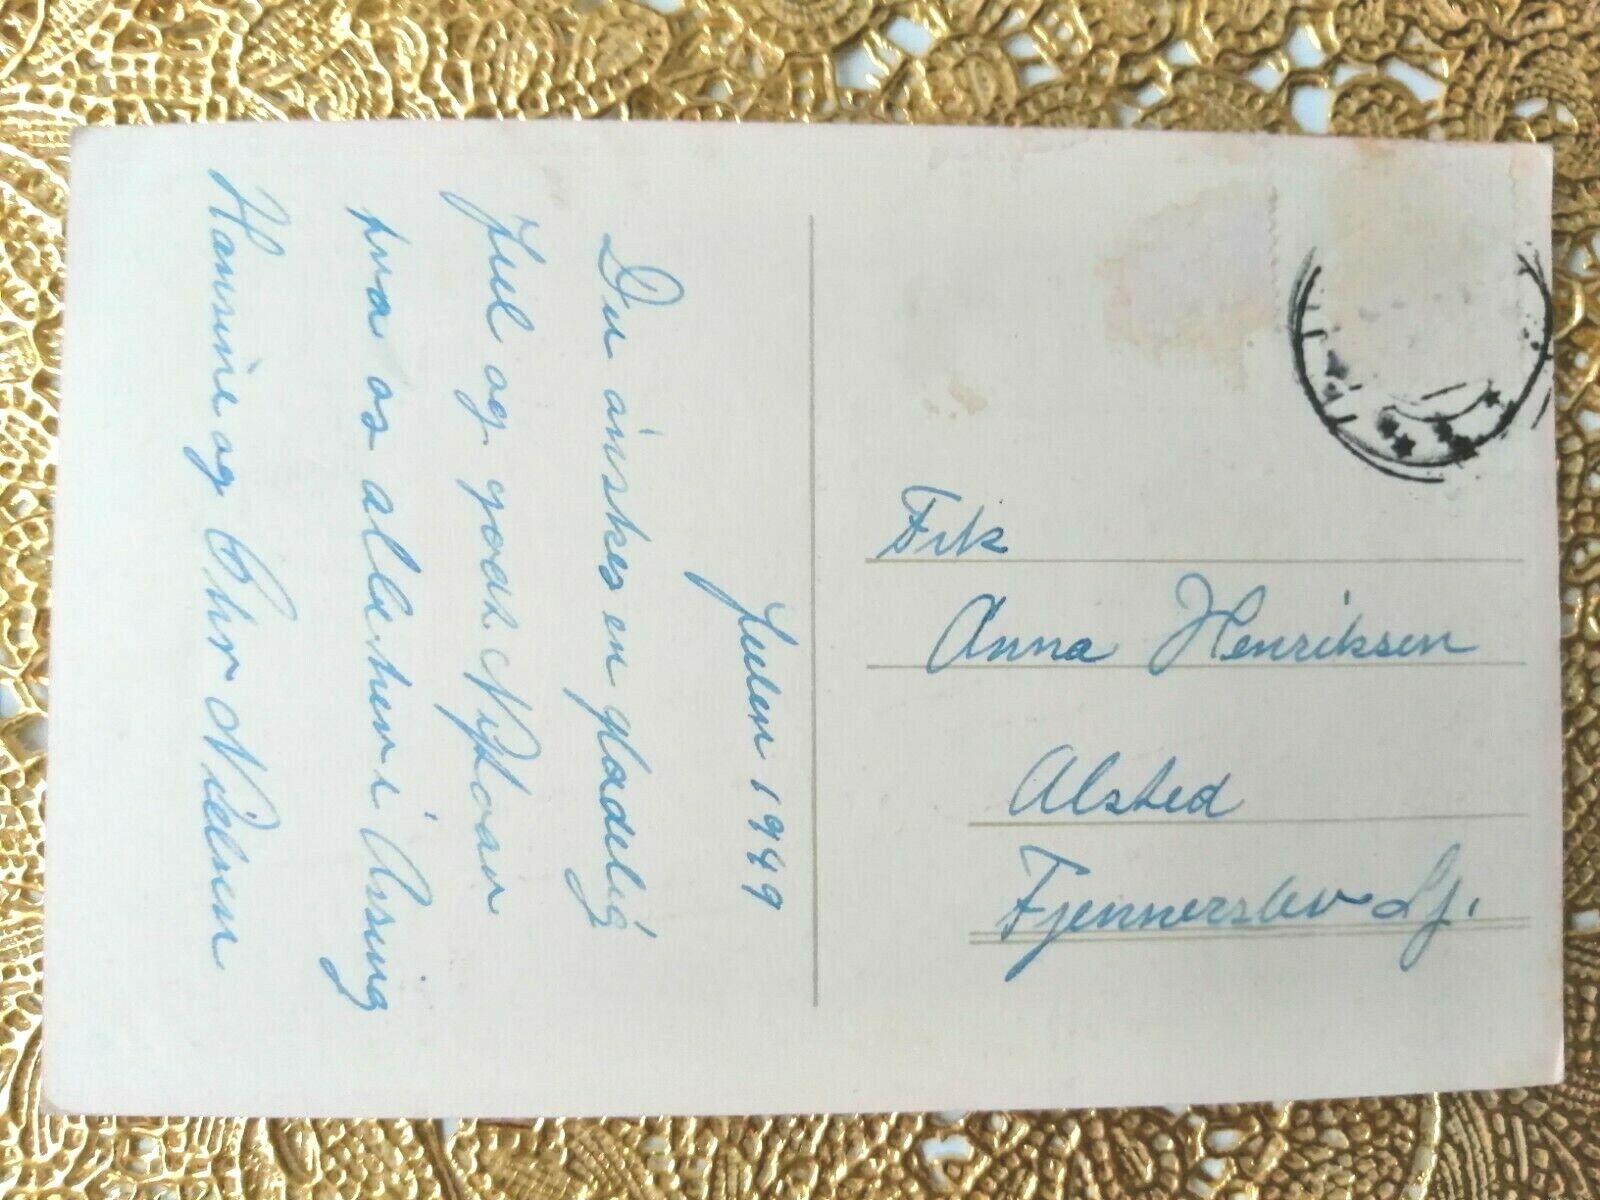 Julen 1949
Du önskes en glædelig
Jul og godt Nytaar
fra os allehen i Assing
Hansine og Chr Nielsen
Frk
Anna Henriksen
Alsted
Fjenneslev Sj.